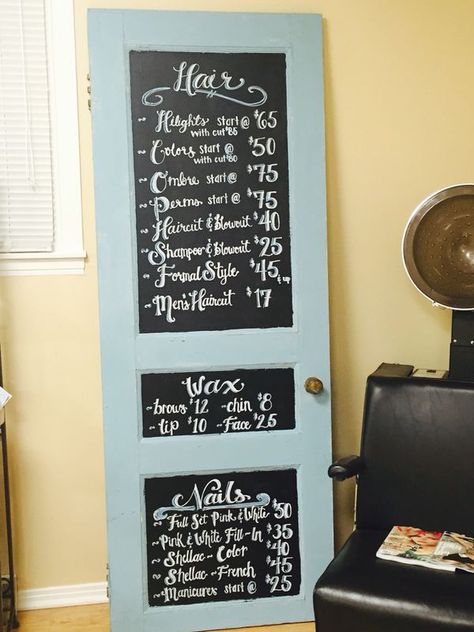 Hair
~ Hilights start @ $65
with cut $85
~ Colors start @ $50
with cut $80
~ Ombre start @ $75
~ Perms start @ $75
~ Haircut & Blowout $40
~ Shampoo & Blowout $25
~ Formal Style $45 & up
~ Men's Haircut $17
Wax
~brows $12 ~chin $8
~lip $10 ~Face $25
Nails
~ Full Set Pink & White $50
~ Pink & White Fill-In $35
~ Shellac - Color $40
~ Shellac - French $45
~ Manicures start @ $25